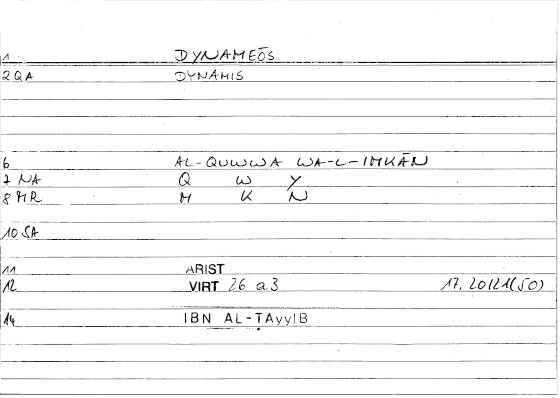 1 DYNAMEŌS
2 QA DYNAMIS
6 AL-QUWWA WA-L-IMKĀN
7 NA Q W Y
8 MR M K N
10 SA
11 ARIST
12 VIRT 26 a3 17, 20/21(50)
14 IBN AL-ṬAyyIB